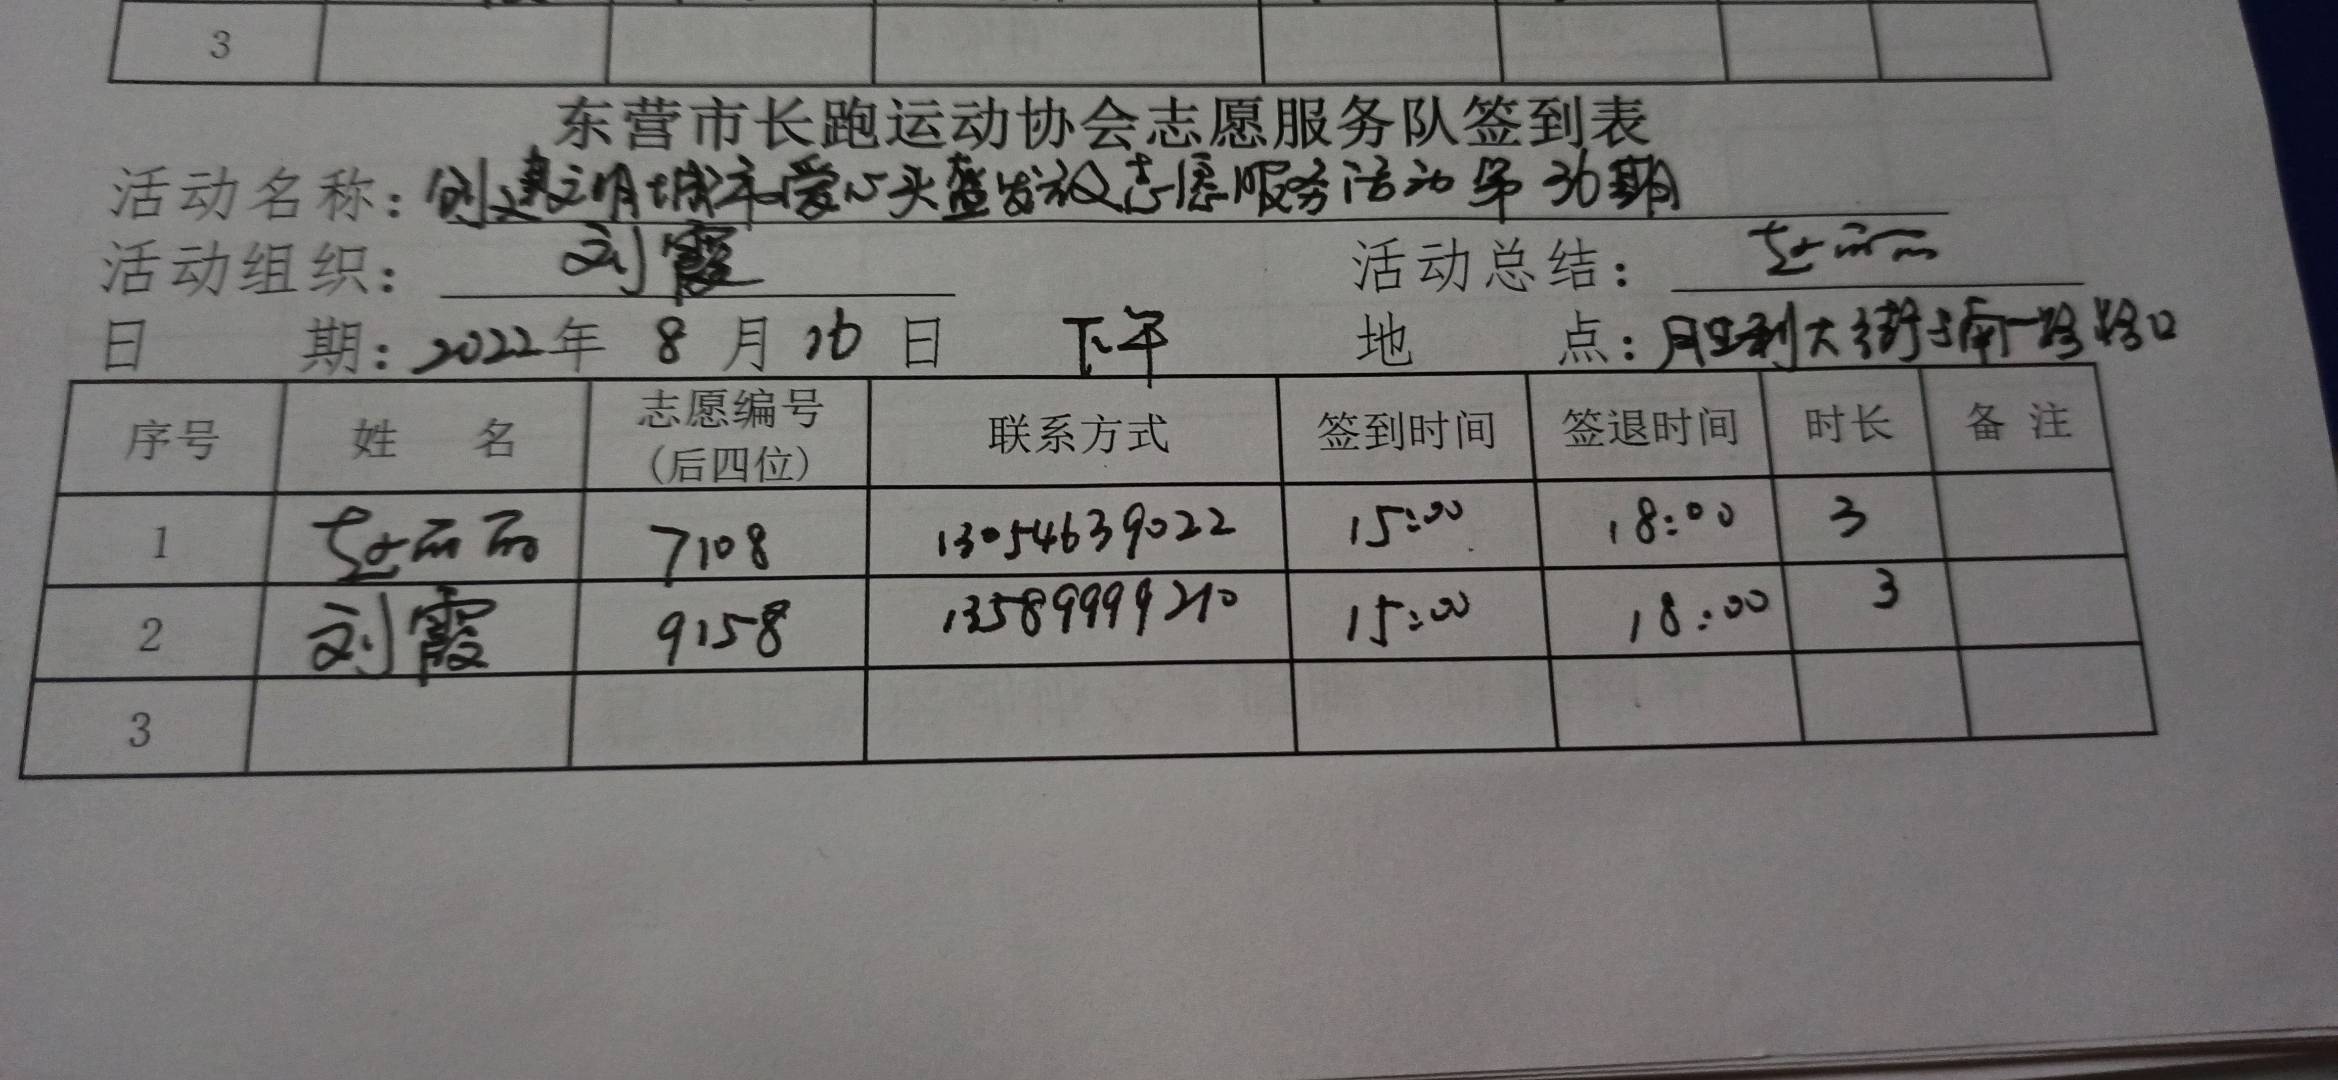 3
东营市长跑运动协会志愿服务队签到表
活动名称：创建文明城市爱心头盔发放志愿服务活动第36期
活动组织：刘霞 活动总结：
日 期：2022年 8 月 26 日 下午 地 点：胜利大街与南一路路口
序号 姓 名 志愿编号(后四位) 联系方式 签到时间 签退时间 时长 备 注
1 7108 13054639022 15:00 18:00 3
2 刘霞 9158 13589999210 15:00 18:00 3
3